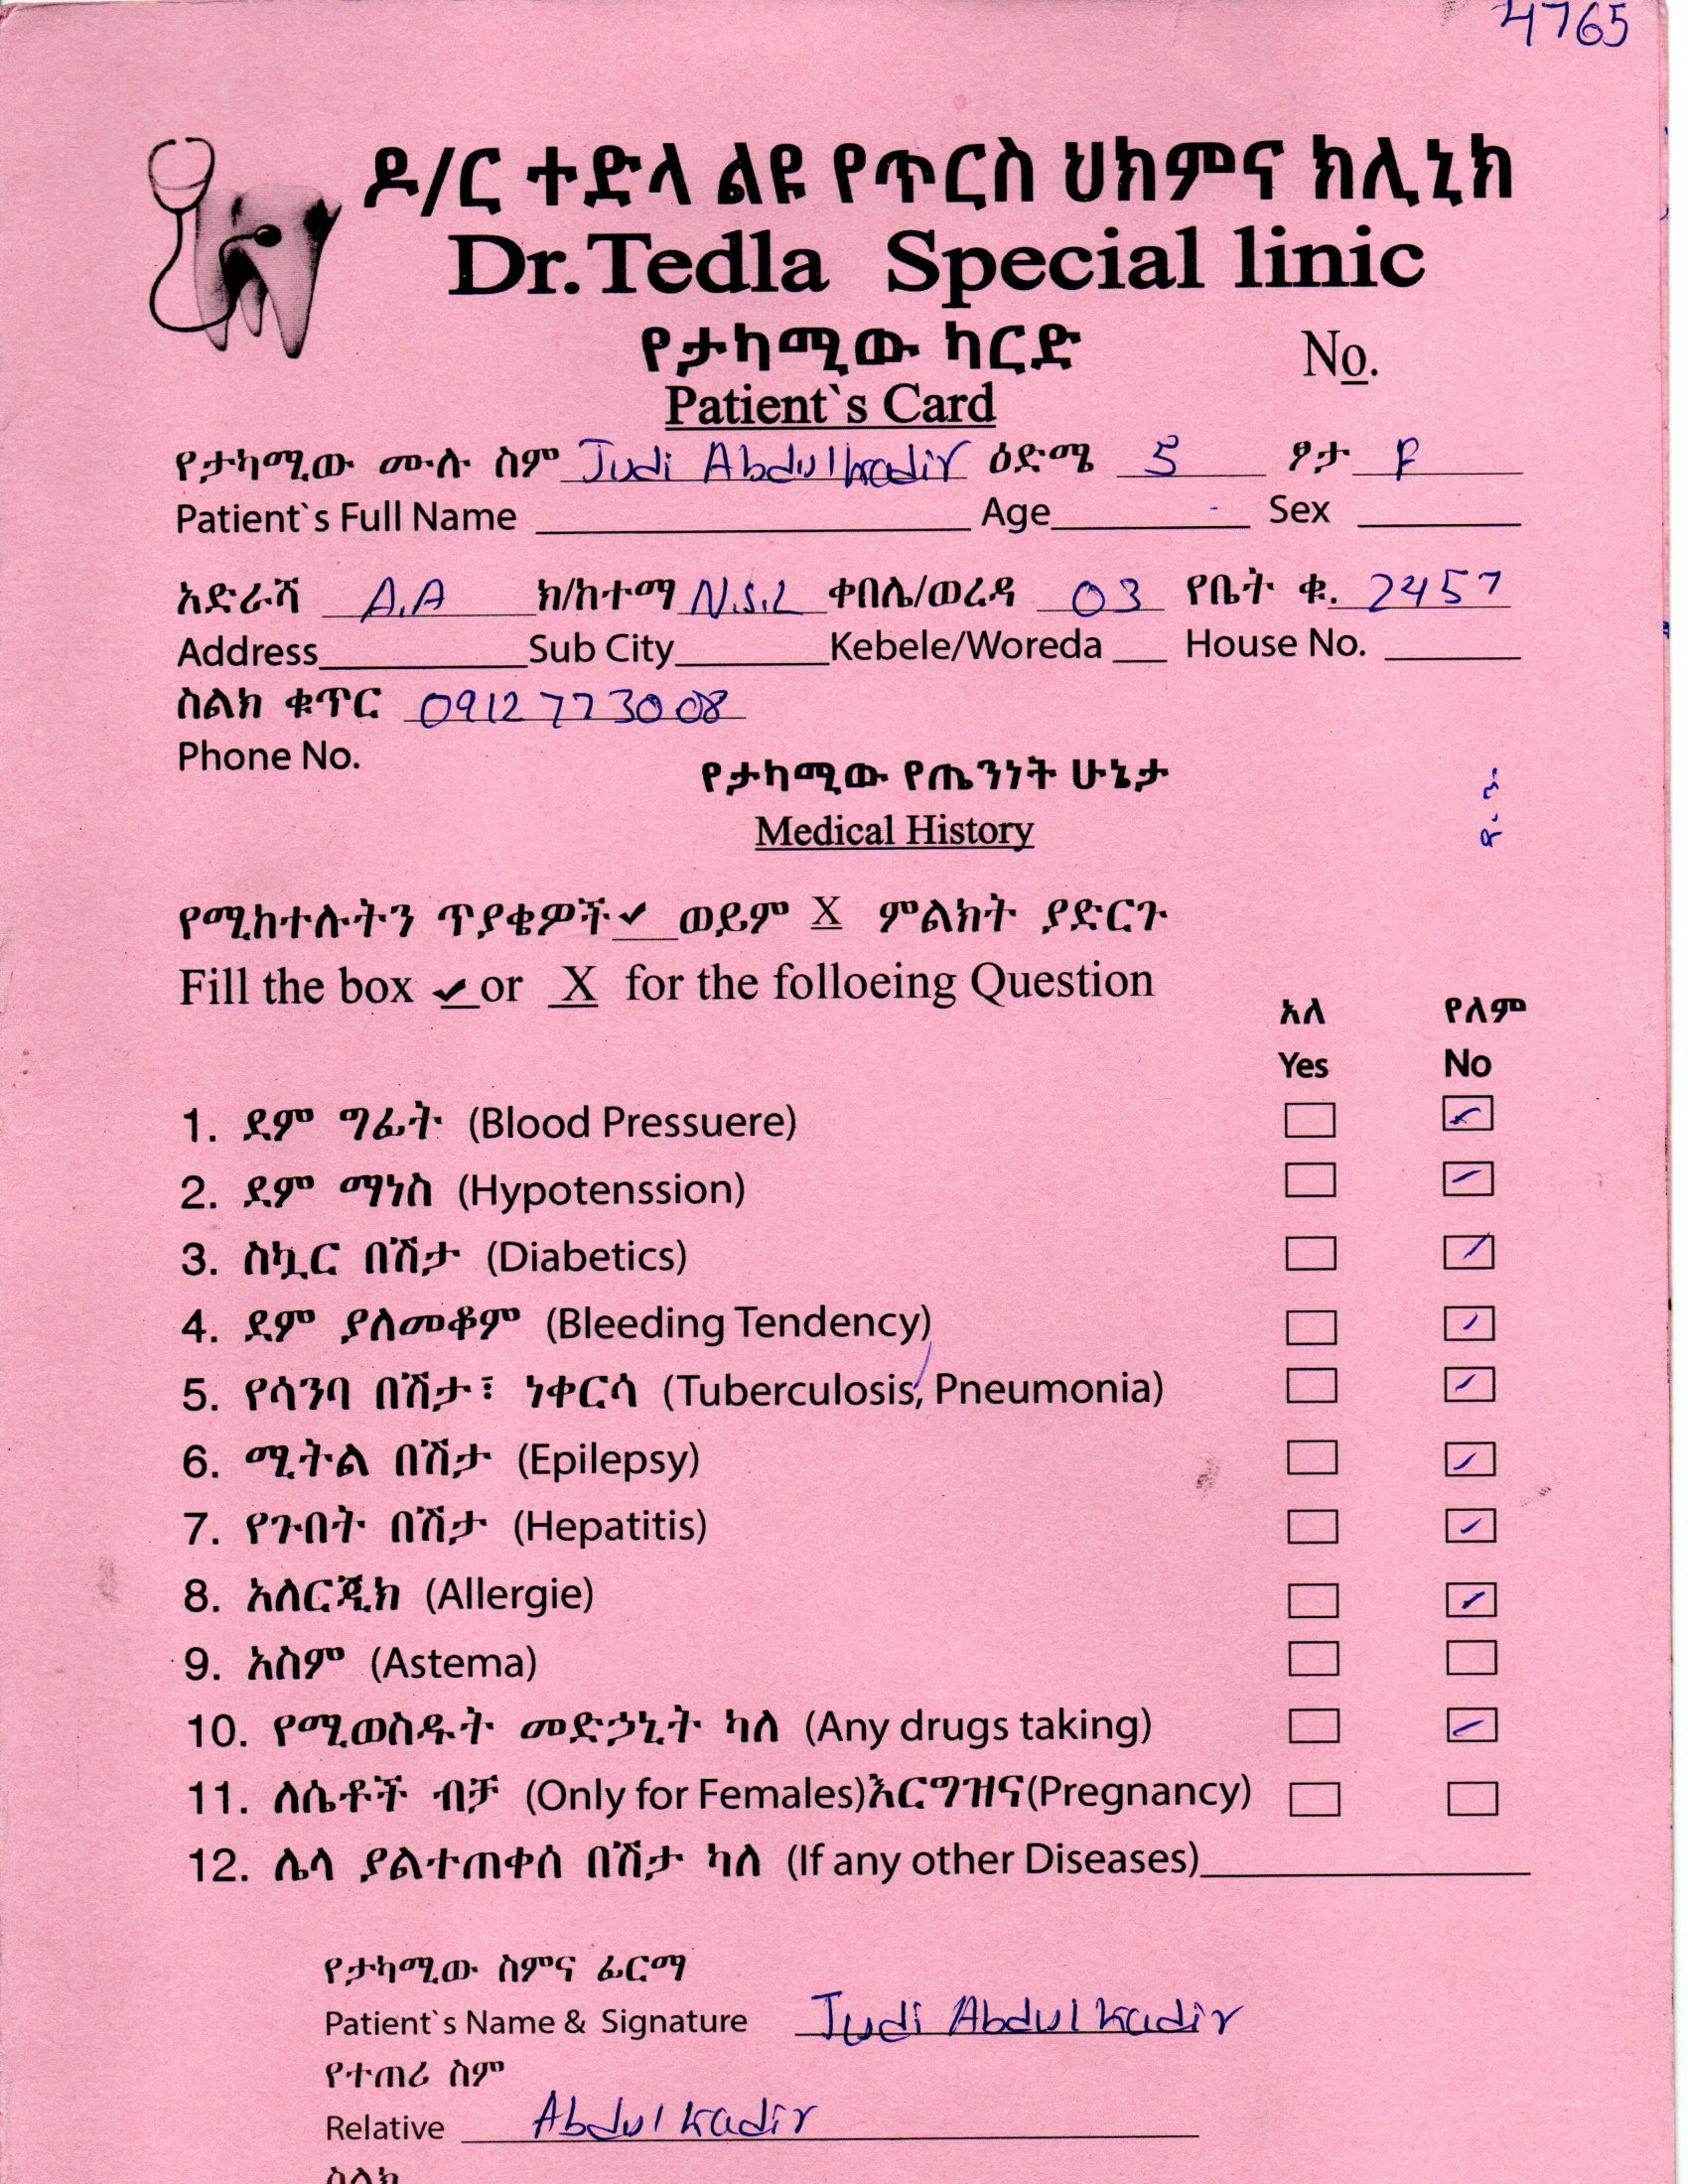 4765
ዶ/ር ተድላ ልዩ የጥርስ ህክምና ክሊኒክ
Dr.Tedla Special linic
የታካሚው ካርድ
No.
Patient`s Card
የታካሚው ሙሉ ስም Judi Abdulkadir ዕድሜ 5 ፆታ F
Patient`s Full Name Age Sex
አድራሻ A.A ክ/ከተማ N.S.L ቀበሌ/ወረዳ 03 የቤት ቁ. 2457
Address Sub City Kebele/Woreda House No.
ስልክ ቁጥር 0912773008
Phone No.
የታካሚው የጤንነት ሁኔታ
Medical History
የሚከተሉትን ጥያቄዎች ✓ ወይም X ምልክት ያድርጉ
Fill the box ✓ or X for the folloeing Question
አለ የለም
Yes No
1. ደም ግፊት (Blood Pressuere) ✓
2. ደም ማነስ (Hypotenssion) ✓
3. ስኳር በሽታ (Diabetics) ✓
4. ደም ያለመቆም (Bleeding Tendency) ✓
5. የሳንባ በሽታ፣ ነቀርሳ (Tuberculosis, Pneumonia) ✓
6. ሚትል በሽታ (Epilepsy) ✓
7. የጉበት በሽታ (Hepatitis) ✓
8. አለርጂክ (Allergie) ✓
9. አስም (Astema)
10. የሚወስዱት መድኃኒት ካለ (Any drugs taking) ✓
11. ለሴቶች ብቻ (Only for Females)እርግዝና(Pregnancy)
12. ሌላ ያልተጠቀሰ በሽታ ካለ (If any other Diseases)
የታካሚው ስምና ፊርማ
Patient`s Name & Signature Judi Abdulkadir
የተጠሪ ስም
Relative Abdulkadir
ስልክ